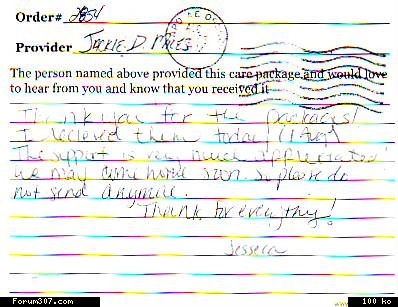 Order# 2854
Provider Jackie D. Miles
The person named above provided this care package and would love
to hear from you and know that you received it
Thank you for the packages!
I recieved them today! (1 Aug)
The support is very much appreciated
we may come home soon so please do
not send anymore.
Thank for everything!
Jesseca
Forum307.com
100 ko